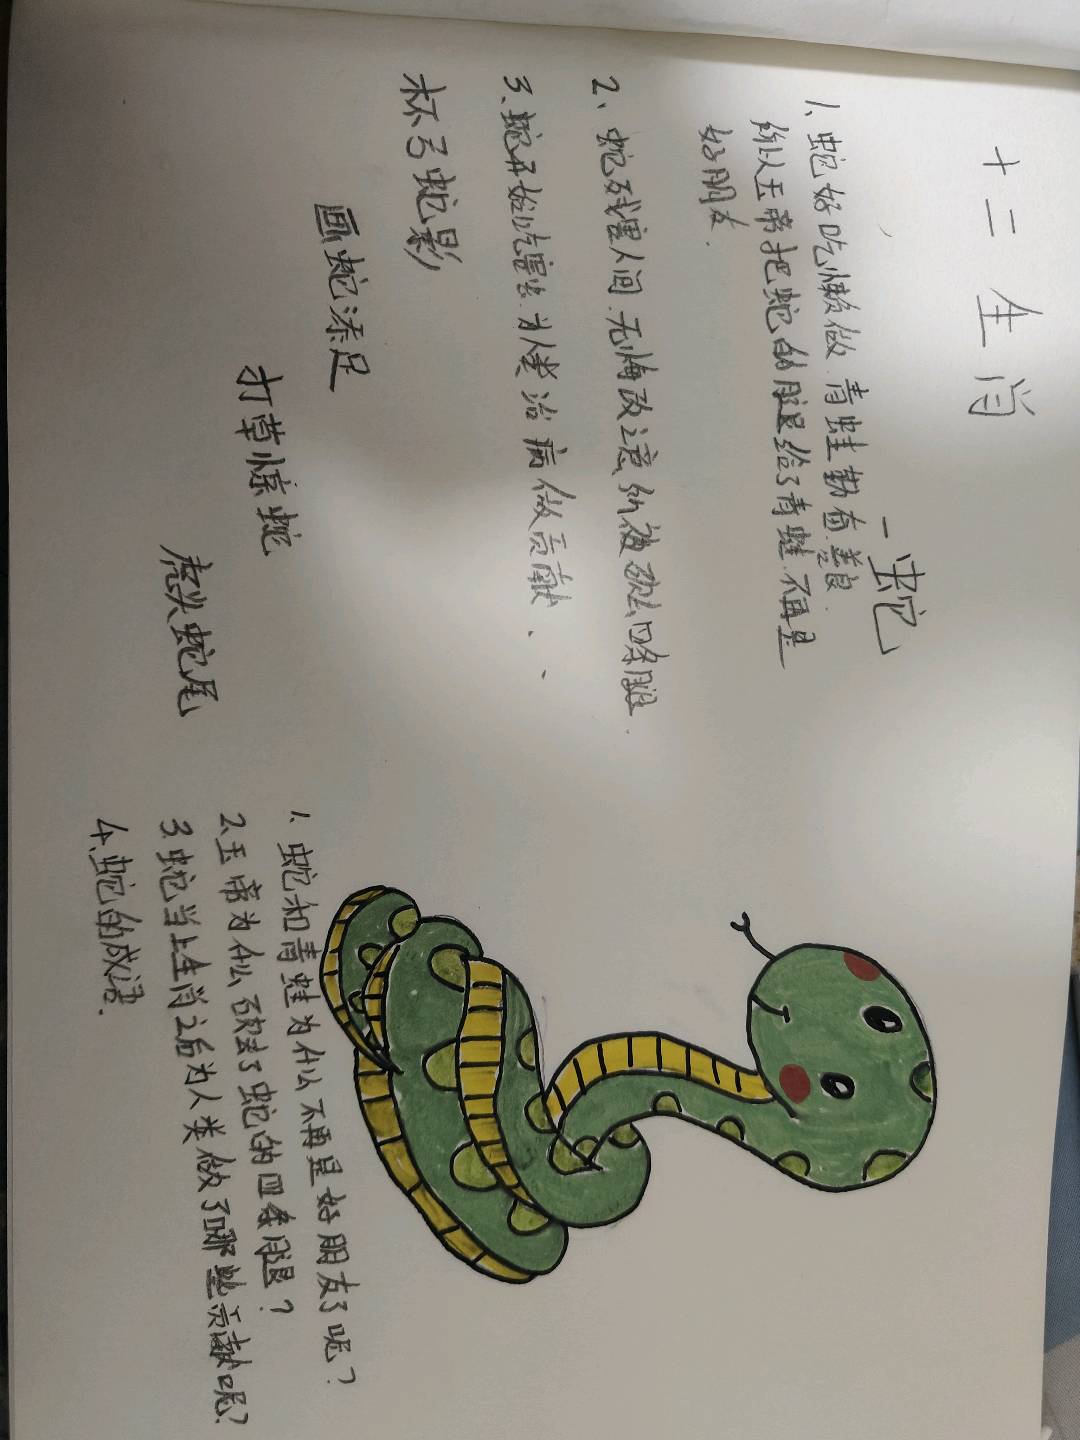 十二生肖
一蛇
1、蛇好吃懒做.青蛙勤奋善良.
所以玉帝把蛇的腿给了青蛙.不再是
好朋友.
2、蛇残害人间.无悔改之意.所被砍去四条腿.
3、蛇开始吃害虫.为人类治病做贡献、、
杯弓蛇影
画蛇添足
打草惊蛇
虎头蛇尾
1.蛇和青蛙为什么不再是好朋友了呢?
2.玉帝为什么砍去了蛇的四条腿?
3.蛇当上生肖之后为人类做了哪些贡献呢?
4.蛇的成语.